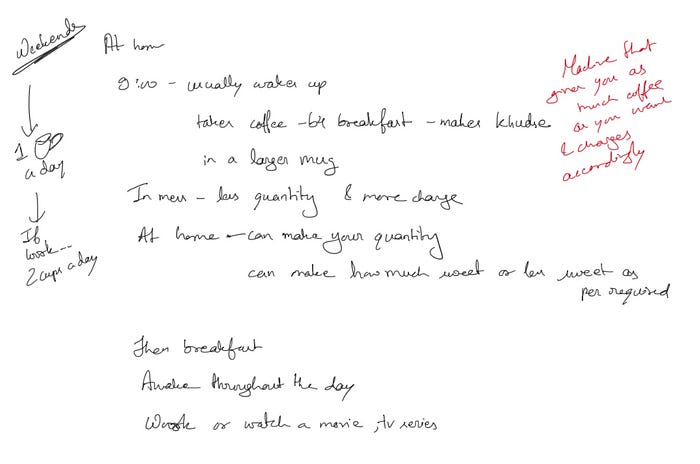 Weekends
1
a day
If
work--
2 cups a day
At home
9:00 - usually wakes up
takes coffee - b4 breakfast - makes khudse
in a larger mug
In mess - less quantity & more charge
At home - can make your quantity
can make how much sweet or less sweet as
per required
Then breakfast
Awake throughout the day
Work or watch a movie, tv series
Machine that
gives you as
much coffee
as you want
& charges
accordingly